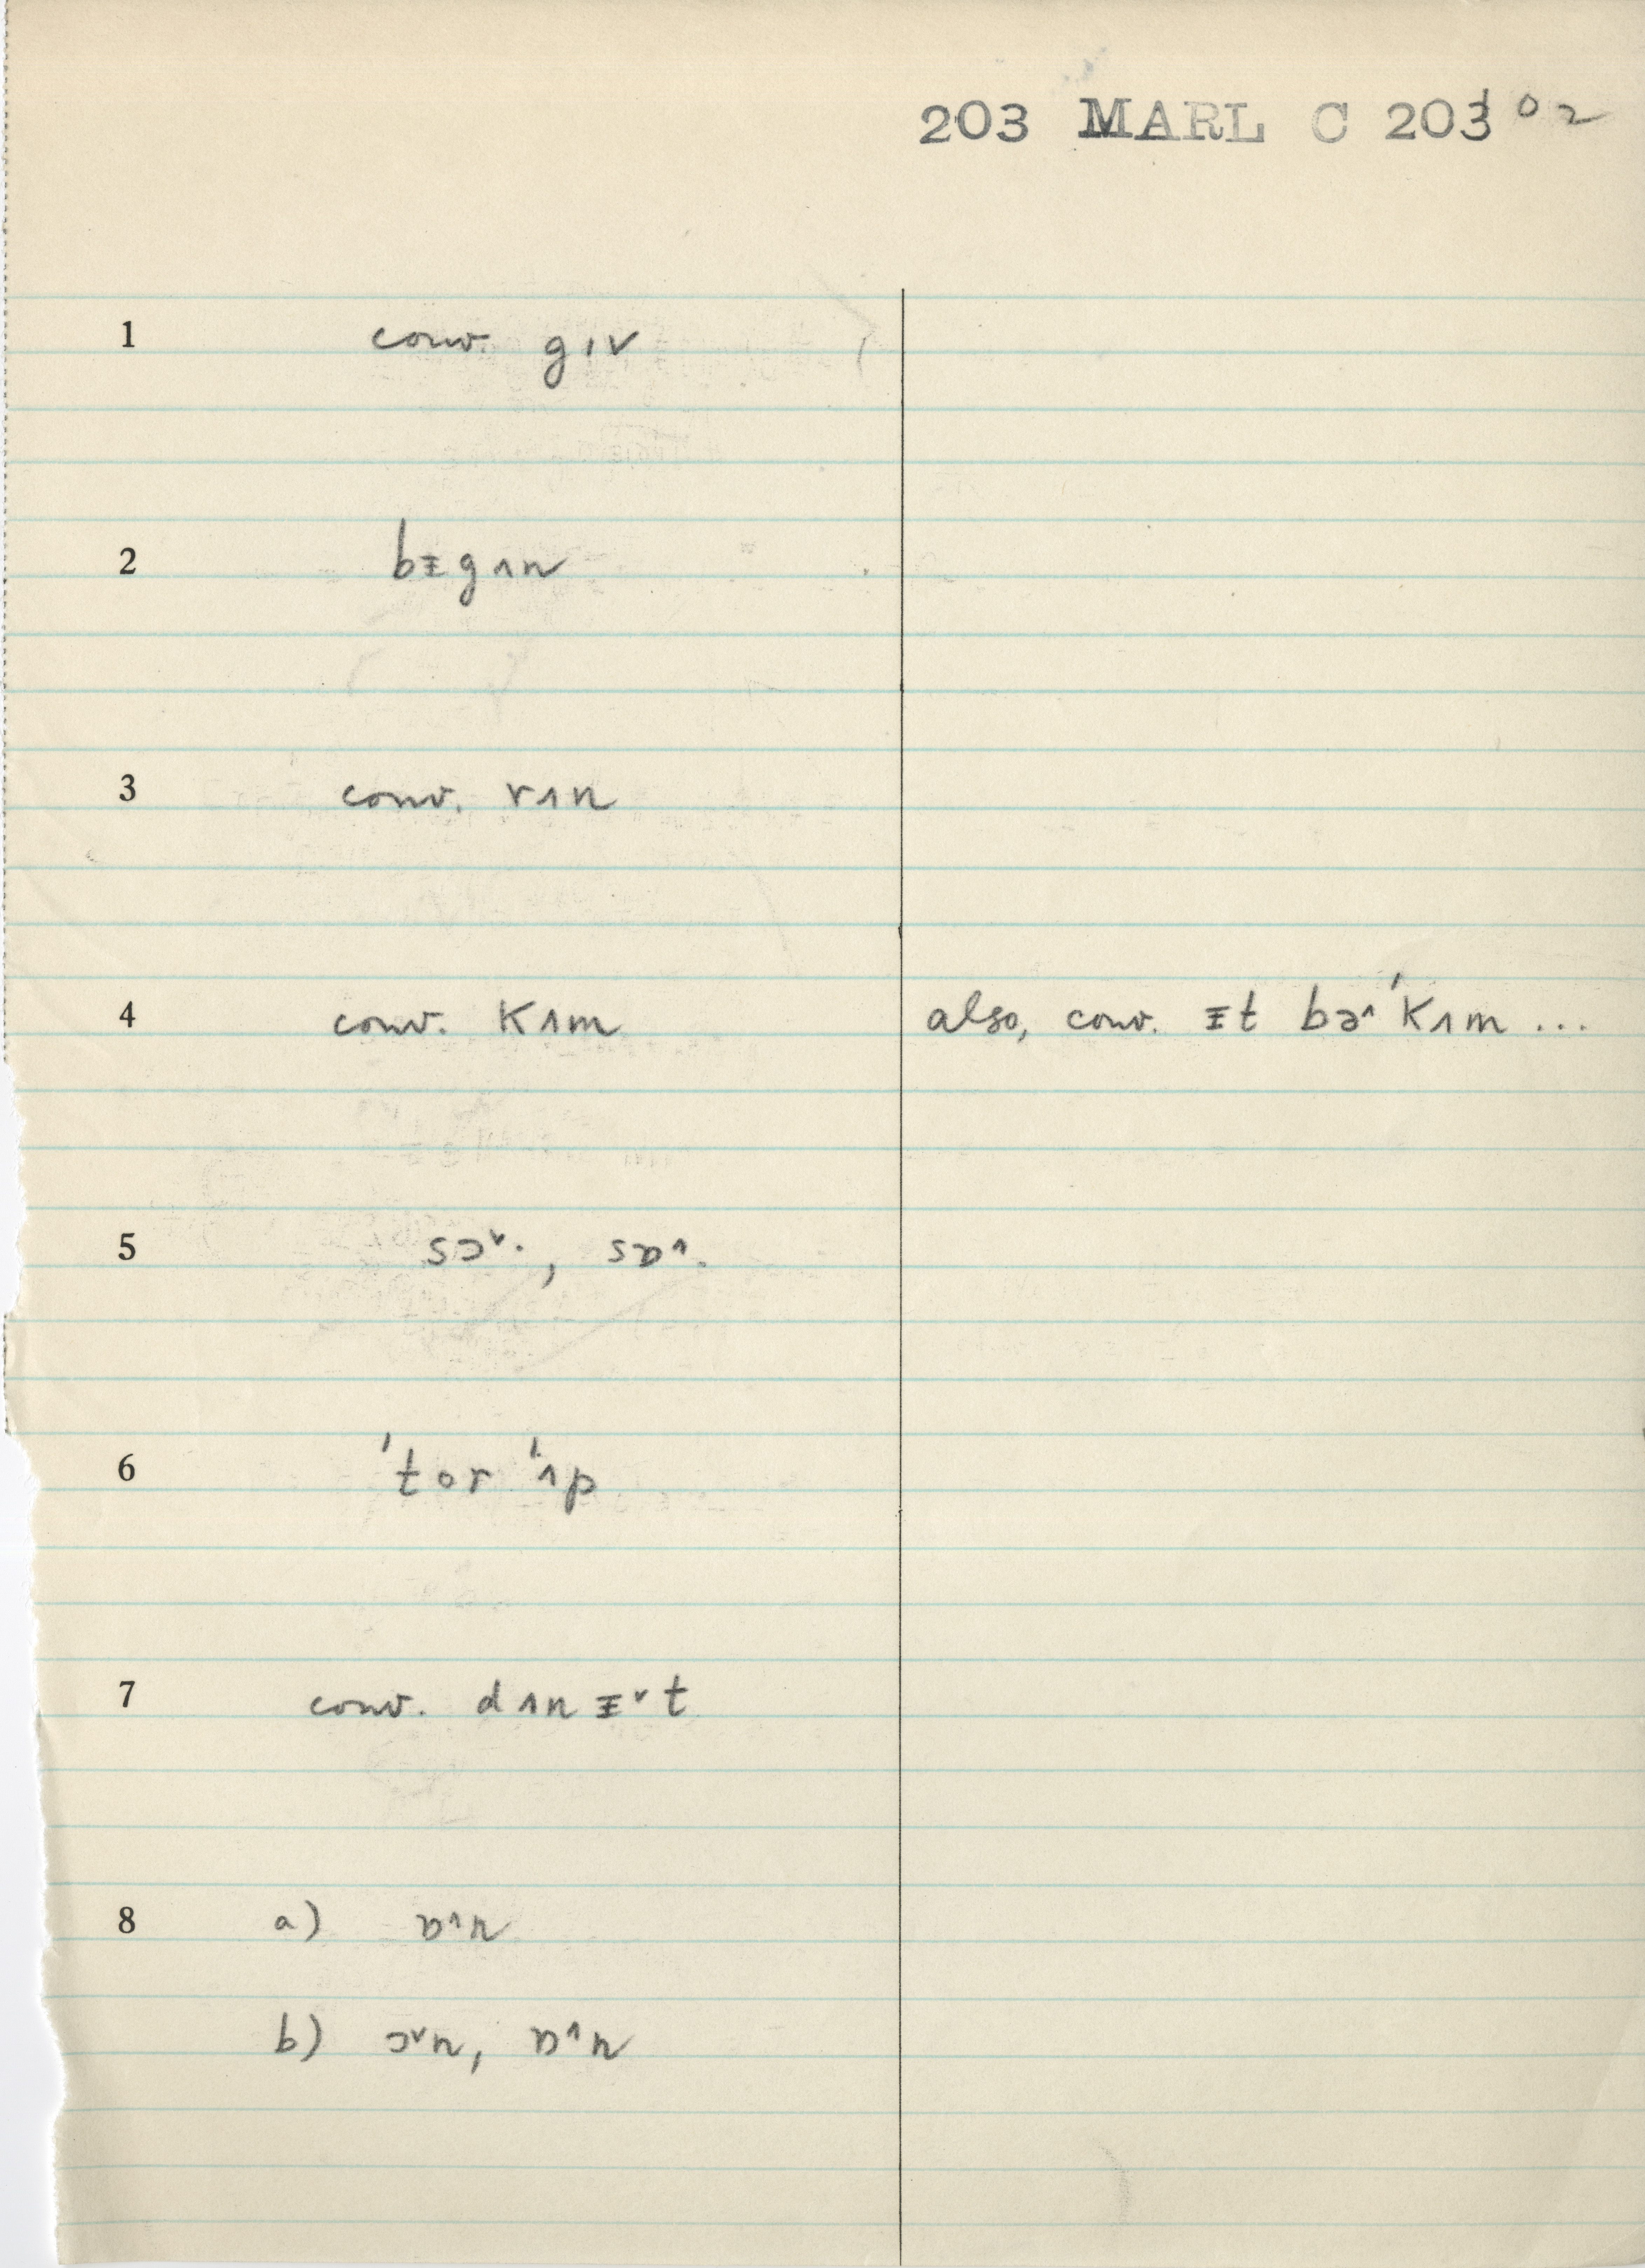 203 MARL C 203 02
1 conv. gɪv
2 bᵻgʌn
3 conv. rʌn
4 conv. kʌm also, conv. ᵻt bə^ˈkʌm ...
5 sɔ˅·, sɒ^·
6 ˈtor ˈʌp
7 conv. dʌn ᵻ˅t
8 a) ɒ^n
b) ɔ˅n, ɒ^n